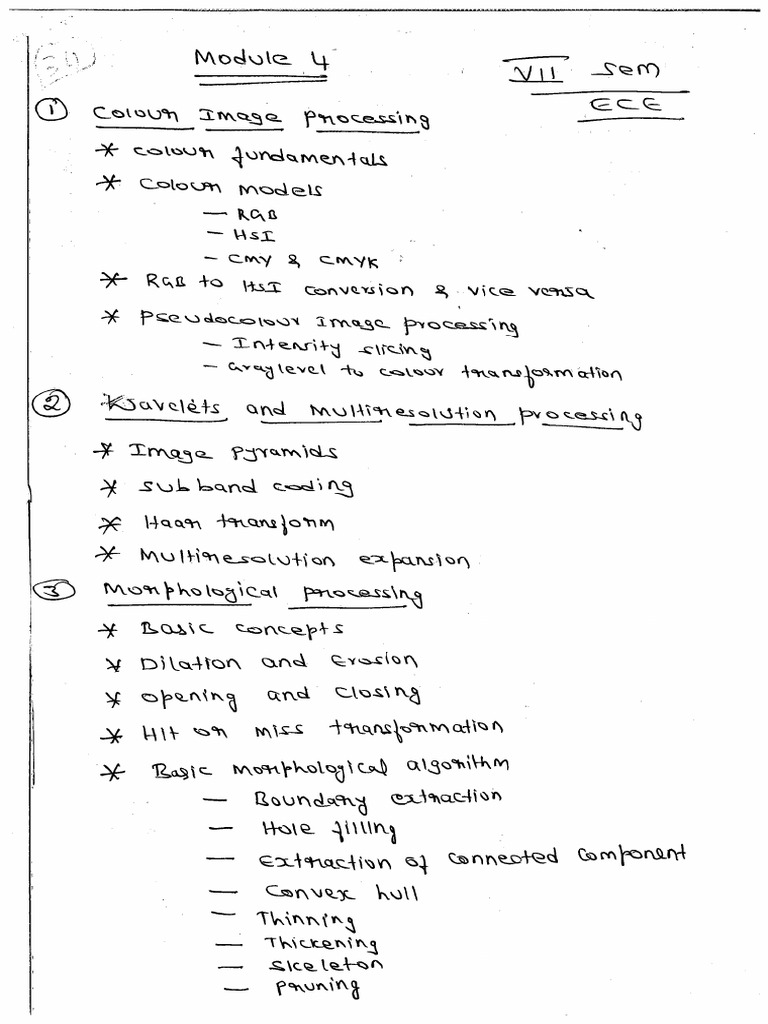 Module 4
VII sem
ECE
① Colour Image Processing
* colour fundamentals
* Colour models
— RGB
— HSI
— CMY & CMYK
* RGB to HSI conversion & vice versa
* Pseudocolour Image processing
— Intensity slicing
— Graylevel to colour transformation
② Wavelets and Multiresolution processing
* Image pyramids
* subband coding
* Haar transform
* Multiresolution expansion
③ Morphological processing
* Basic concepts
* Dilation and Erosion
* opening and closing
* Hit or miss transformation
* Basic morphological algorithm
— Boundary extraction
— Hole filling
— Extraction of connected component
— Convex hull
— Thinning
— Thickening
— Skeleton
— Pruning